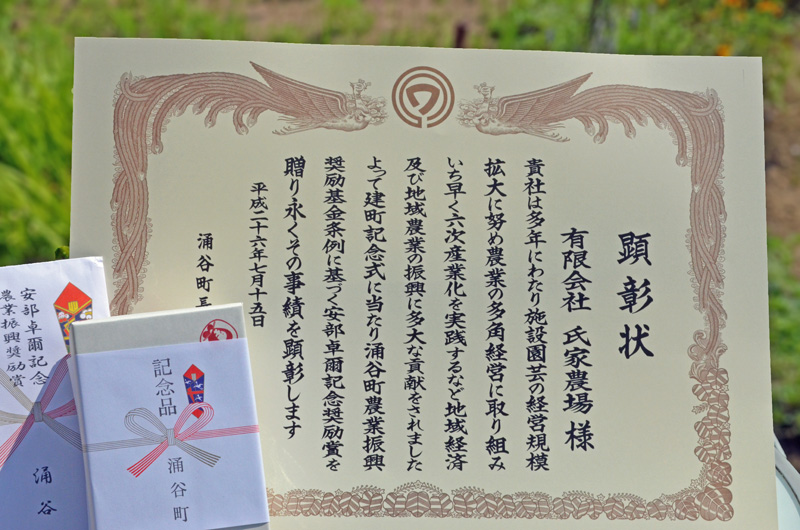 顕彰状
有限会社 氏家農場 様
貴社は多年にわたり施設園芸の経営規模
拡大に努め農業の多角経営に取り組み
いち早く六次産業化を実践するなど地域経済
及び地域農業の振興に多大な貢献をされました
よって建町記念式に当たり涌谷町農業振興
奨励基金条例に基づく安部卓爾記念奨励賞を
贈り永くその事績を顕彰します
平成二十六年七月十五日
涌谷町長
安部卓爾記念
農業振興奨励賞
涌谷
記念品
涌谷町